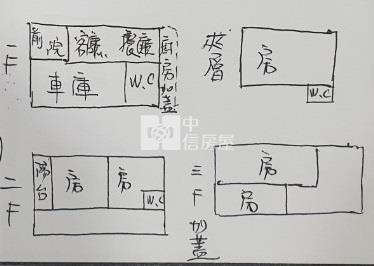 一F
前院
客廳
餐廳
廚房加蓋
車庫
W.C
夾層
房
W.C
中信房屋
二F
陽台
房
房
W.C
三F加蓋
房
房